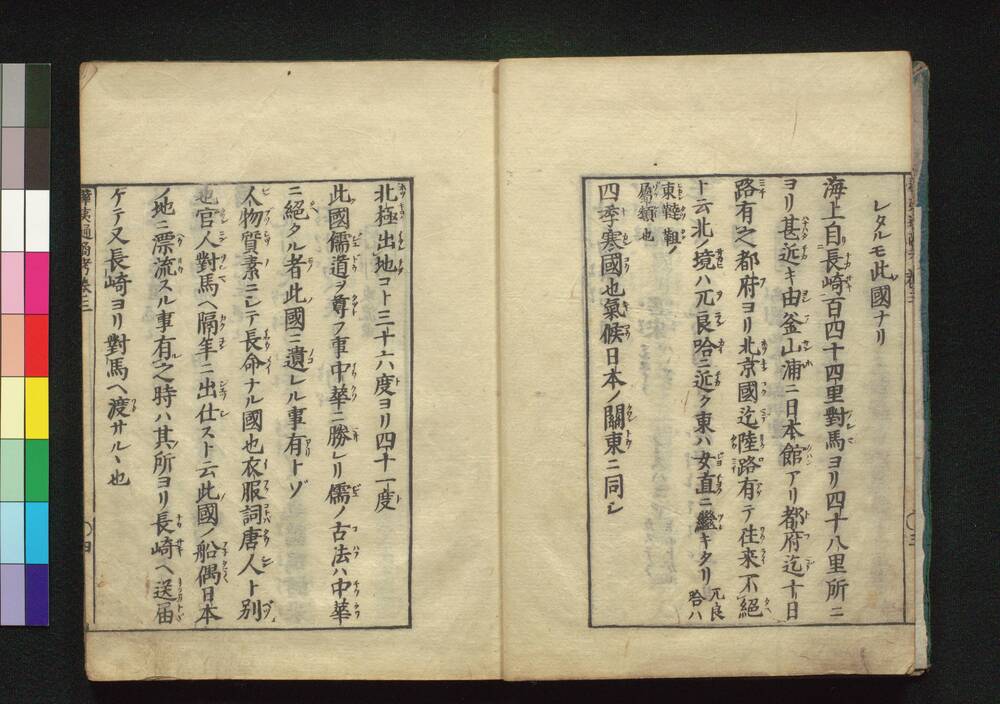 レタルモ此國ナリ
海上自長崎百四十四里對馬ヨリ四十八里所ニ
ヨリ甚近キ由釜山浦ニ日本館アリ都府迄十日
路有之都府ヨリ北京國迄陸路有テ往來不絕
ト云北ノ境ハ兀良哈ニ近ク東ハ女直ニ繼キタリ兀良哈ハ
東韃靼ノ
屬類也
四季寒國也氣候日本ノ關東ニ同シ
北極出地コト三十六度ヨリ四十一度
此國儒道ヲ尊フ事中華ニ勝レリ儒ノ古法ハ中華
ニ絕タル者此國ニ遺レル事有トゾ
人物質素ニシテ長命ナル國也衣服詞唐人ト別
也官人對馬ヘ隔年ニ出仕スト云此國ノ船偶日本
ノ地ニ漂流スル事有之時ハ其所ヨリ長崎ヘ送届
ケテ又長崎ヨリ對馬ヘ渡サルヽ也
華夷通商考卷三
〇三
〇四